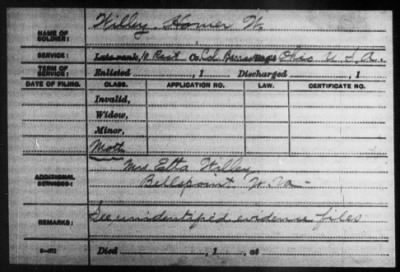 NAME OF SOLDIER: Willey Homer W.
SERVICE: Late rank, Co. Col. U. S. A.
TERM OF SERVICE: Enlisted , 1 Discharged , 1
DATE OF FILING. CLASS. APPLICATION NO. LAW. CERTIFICATE NO.
Invalid,
Widow,
Minor,
Moth
ADDITIONAL SERVICES: Mrs Etta Willey
Bellepoint W. Va
REMARKS: See unidentified evidence files
Died , 1 , at